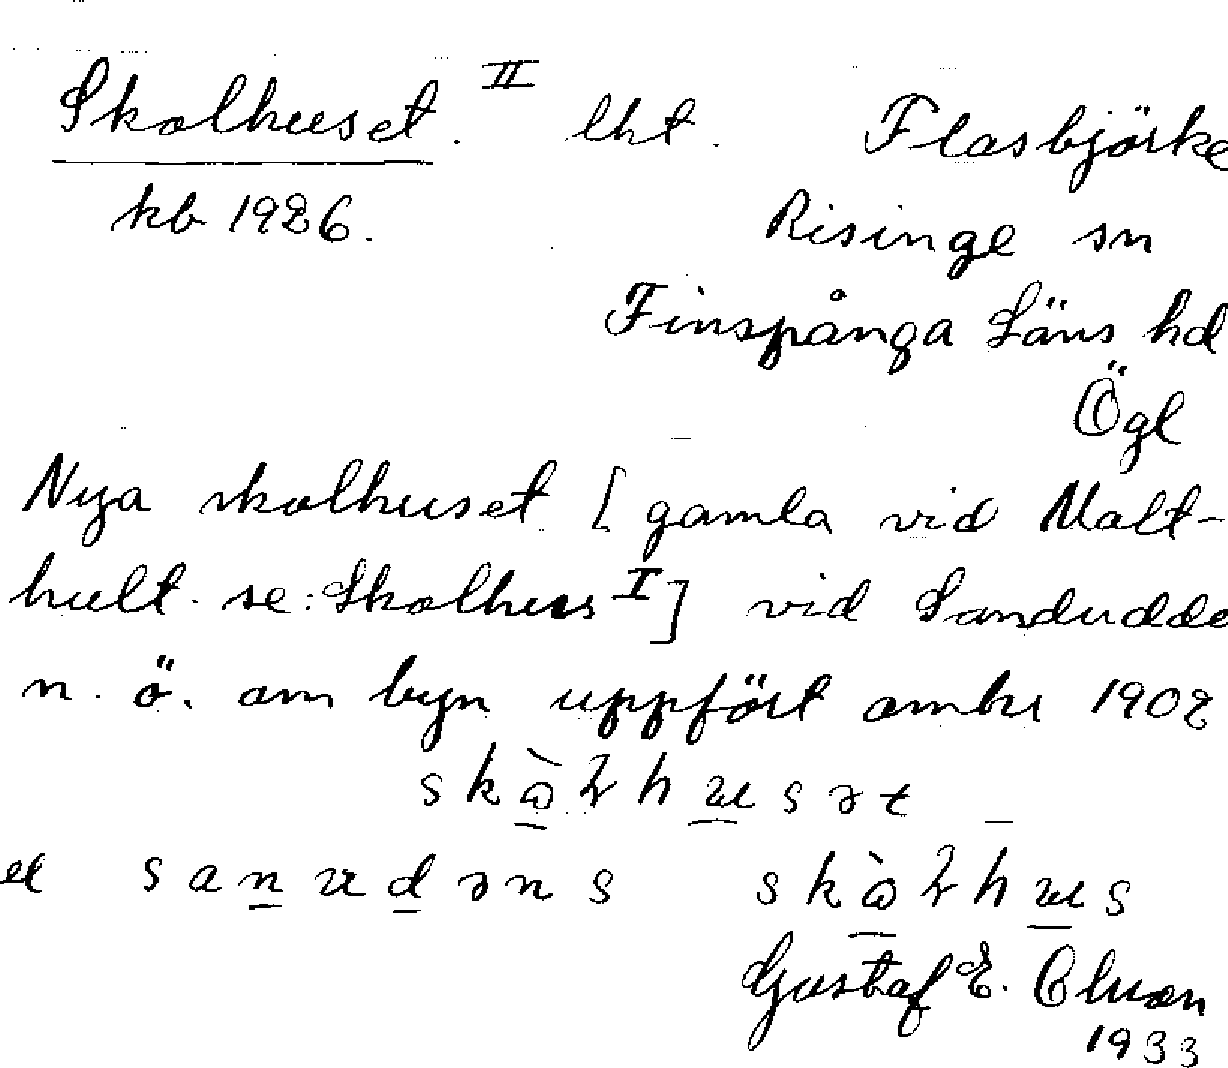 Skolhuset. II lht. Flasbjörke
kb 1926. Risinge sn
Finspånga Läns hd
Ögl
Nya skolhuset [gamla vid Malt-
hult. se: Skolhus I] vid Sandudde
n. ö. om byn uppfört omkr 1902
skὼɫhusət
el sanudəns skὼɫhus
Gustaf E.
1933